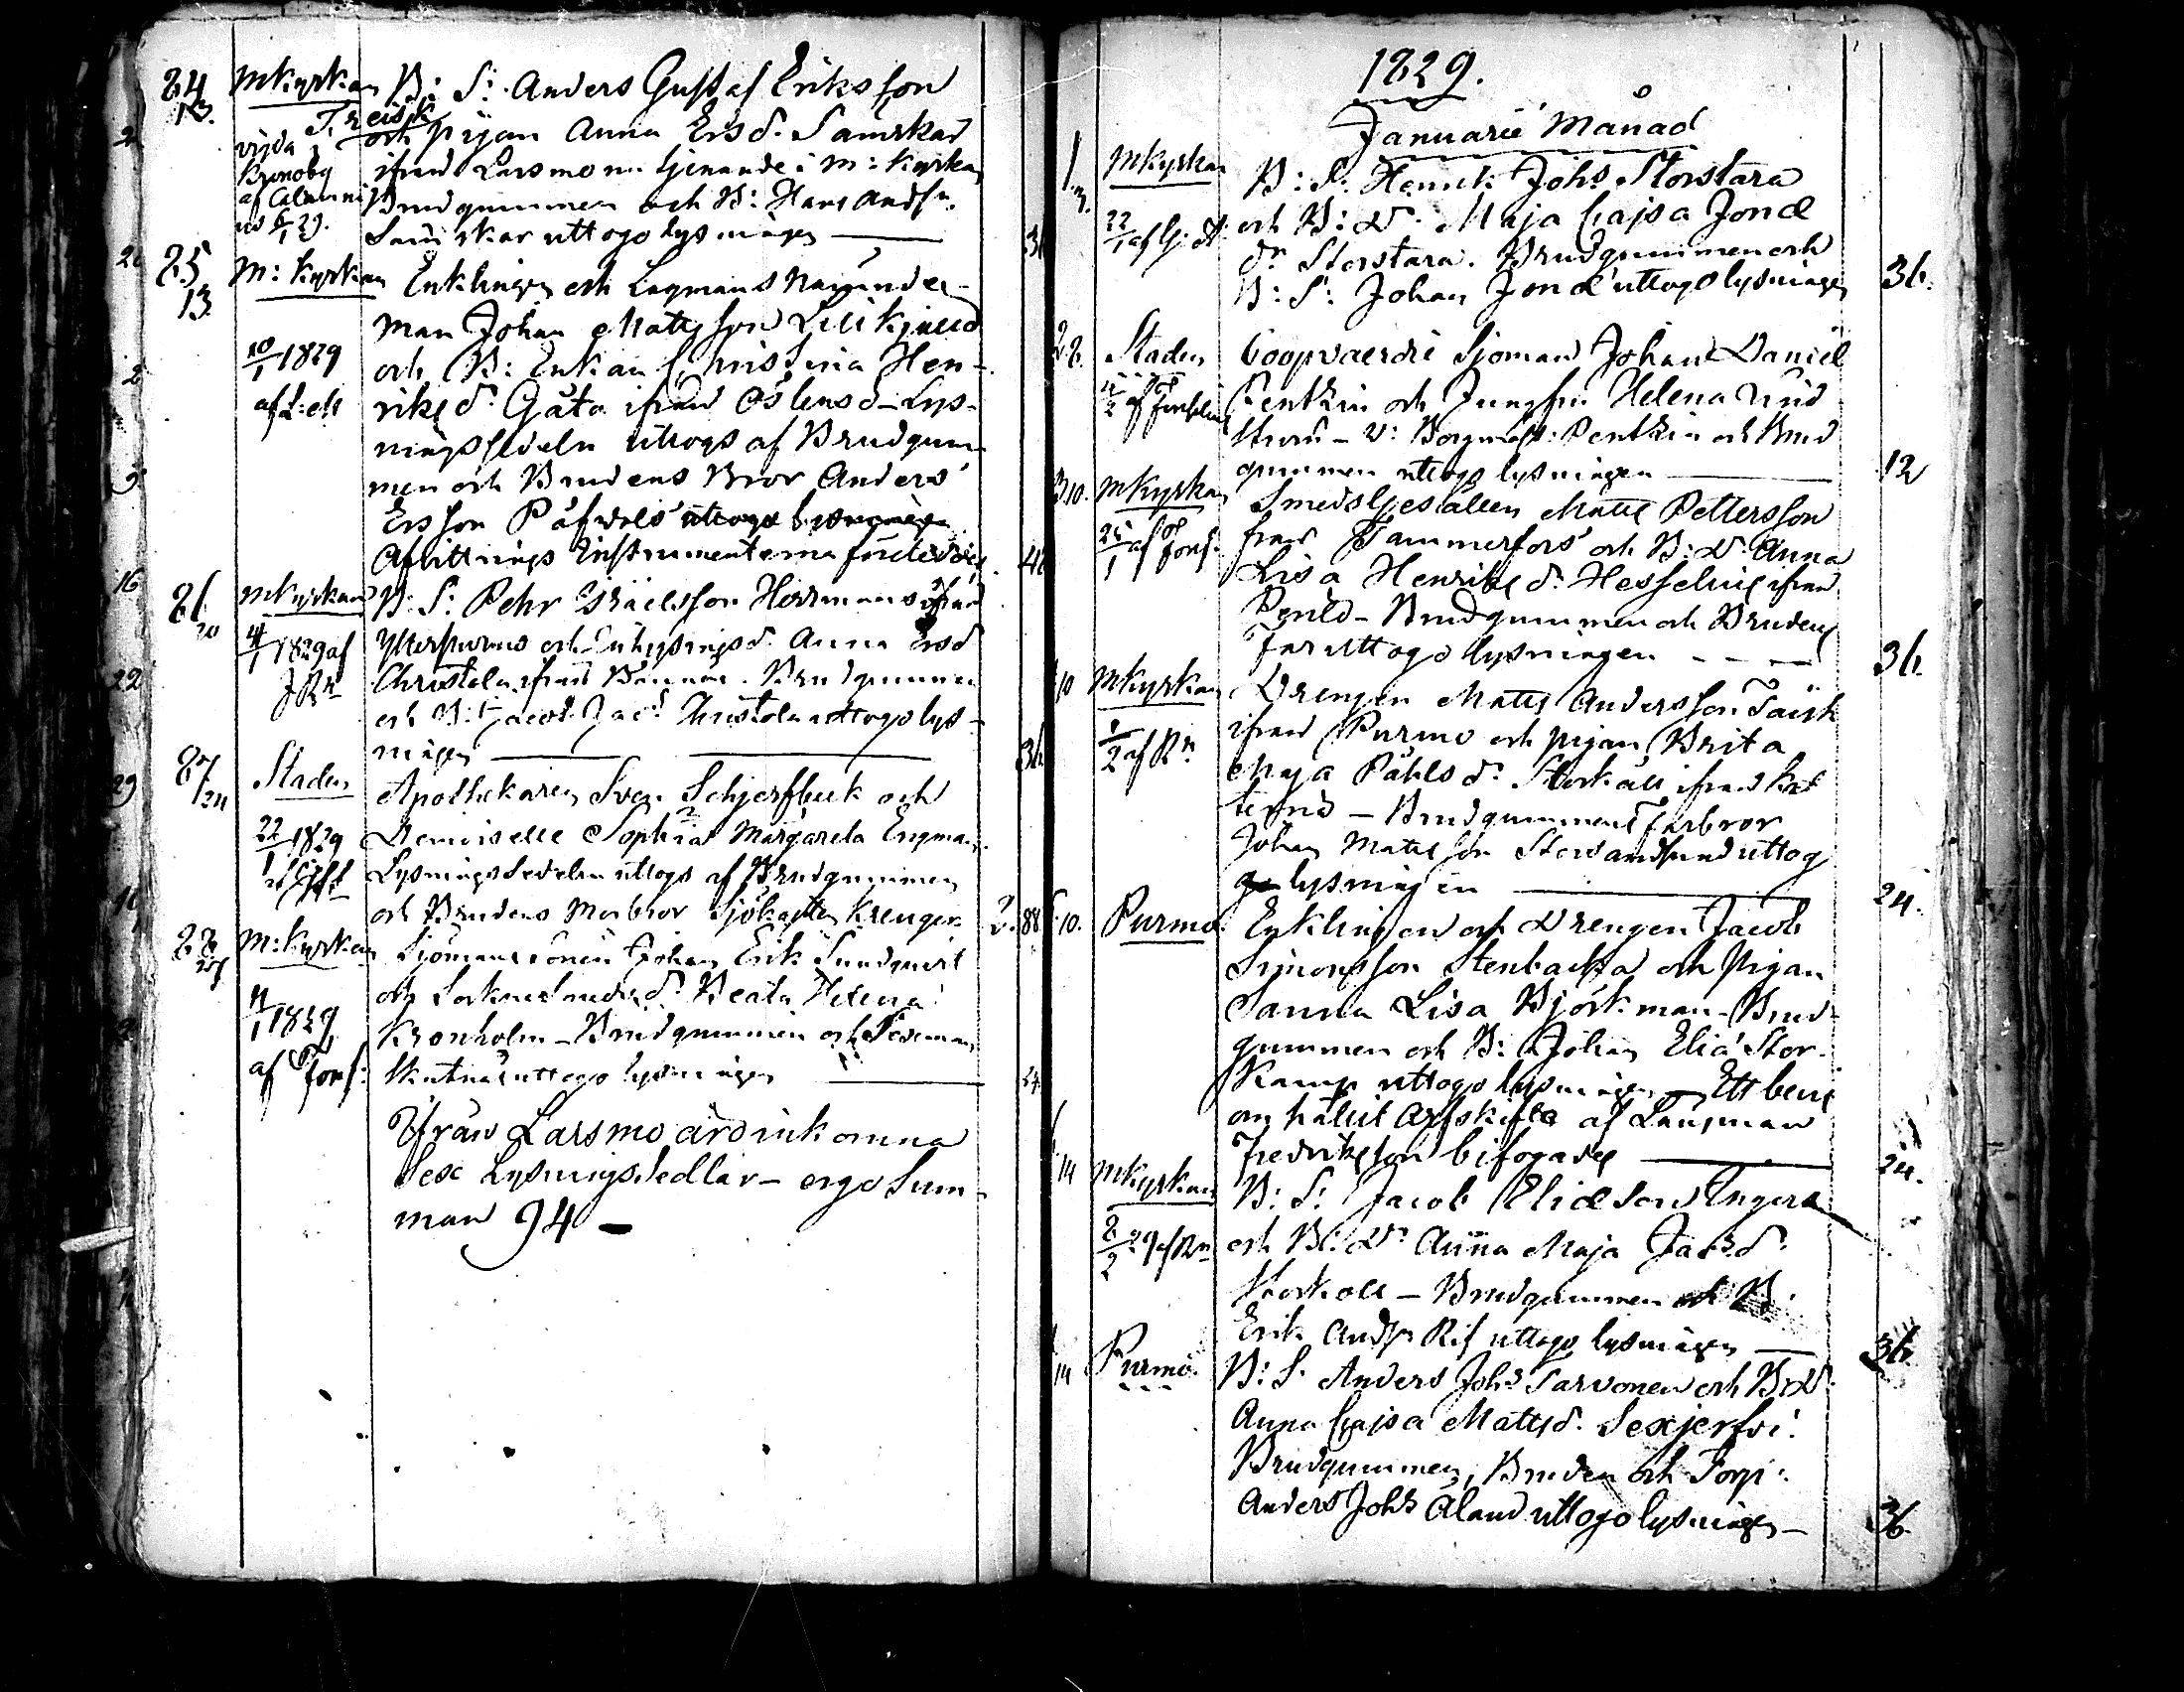 84 13. Mkyrkan B: S: Anders Gustaf Eriksson
Treisk
vigda i och pigan Anna Ersd. Samskar
Kronoby ifrån Larsmo nu tjenande i M: Kyrkan
af Calamni Brudgummen och B: Hans Andsn.
us 6/1 29. Samskar uttogo lysningen — 36
85 13. M: Kyrkan Enklingen och Lagmans Nämnde-
man Johan Mattsson Lillkjneed
10/1 1829 och B: Enkan Christina Hen-
riksd. Gåta ifrån Öslensö - Lys-
ningssedeln uttogs af Brudgum-
men och Brudens Bror Anders
Ersson Påfvals uttogo lysningen
Afvittrings Instrumenterna företeddes. 48
86 20 Mkyrkan B: S: Pehr Israelsson Herrmans ifrån
4/1 1829 af Ytterpurmo och Inhysingsd. Anna Ersd
Christola ifrån Brudgummen
och B: Jacob Jacs Christola uttogo lys-
ningen — 36
87/24 Staden Apothekaren Sven Schjerfbeck och
22/1 1829 Demoiselle Sophia Margareta Engman
Lysningssedeln uttogs af Brudgummen
och Brudens Morbror Sjökapten Kreuger 2. 88
88 27 M: Kyrkan Sjömanssonen Johan Erik Sundqvist
11/1 1829 och Socknesmedsd. Beata Helena
Kronholm - Brudgummen och Sexman
af Forss: Skutnäs uttogo lysningen — 24
Ifrån Larsmo äro inkomna
Sex Lysningssedlar - ergo Sum-
man 94 -
1829.
Januarii Månad
1. 3. Mkyrkan B: S: Henrik Johs Storstara
22/1 af och B: D: Maja Cajsa Jonæ
dr Storstara. Brudgummen och
B: S: Johan Jonæ uttogo lysningen 36.
2. 8. Staden Coopvaerdi Sjöman Johan Daniel
Pentzin och Jungfru Helena Lind
ström - v: Borgmäst: Pentzin och Brud
gummen uttogo lysningen — 12
3 10. Mkyrkan Smedsgesällen Matts Pettersson
25/1 af Forss: från Tammerfors och B: D: Anna
Lisa Henriksd: Hesselius ifrån
Perilö - Brudgummen och Brudens
Far uttogo lysningen - - - 36.
10 Mkyrkan Drengen Matts Andersson Täisk
1/2 af Rn ifrån Purmo och pigan Brita
Maja Påhlsd: Storkåll ifrån Kat
ternö - Brudgummens Farbror
Johan Mattsson Storandsund uttog
lysningen — 24.
5. 10. Purmo. Enklingen och Drengen Jacob
Simonsson Stenbacka och pigan
Sanna Lisa Björkman - Brud-
gummen och B: Johan Eliæ Stor-
kamp uttogo lysningen - Ett bevis
om hållit Arfskifte af Länsman
Fredriksson bifogades — 24.
14 Mkyrkan B: S: Jacob Eliæson Ingera
8/2 29 af Rn och B: Dr Anna Maja Jacsd:
Storkåll - Brudgummen och B:
Erik Andsn Rif uttogo lysningen — 36.
14 Purmo. B: S: Anders Johs Sarvonen och B: D:
Anna Cajsa Mattsd. Sexjerfvi.
Brudgummen, Bruden och Torp:
Anders Johs Åland uttogo lysningen - 36